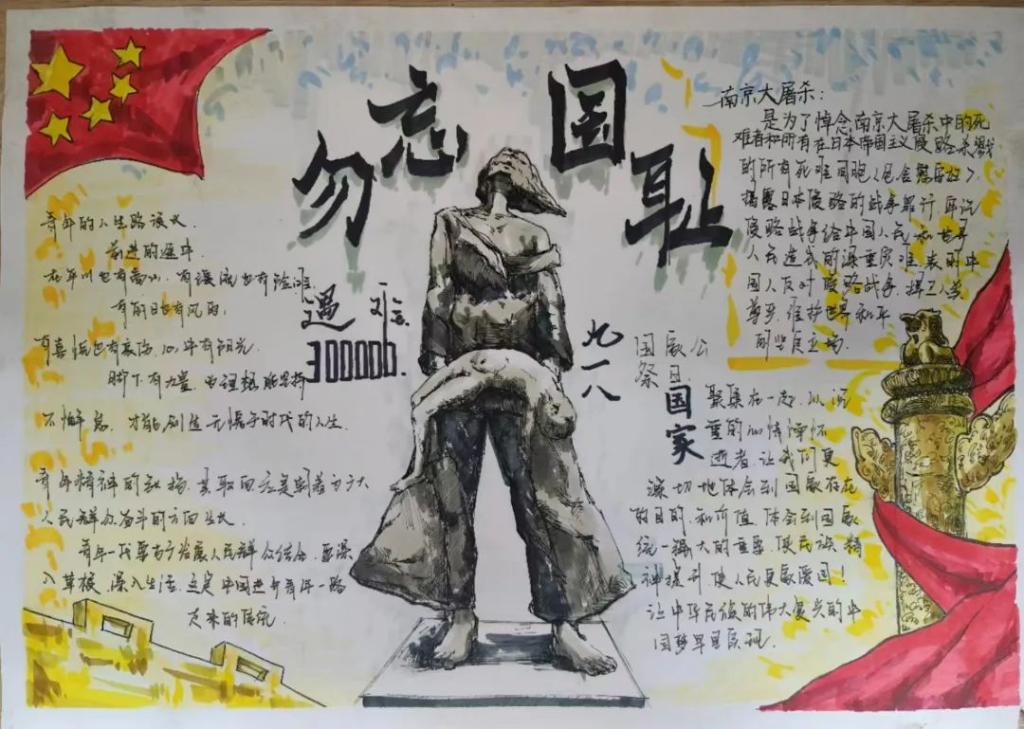 勿忘国耻
青年的人生路漫长
前进的途中
有平川也有高山，有缓流也有险滩
有丽日也有风雨，
有喜悦也有哀伤，心中有阳光
脚下有力量
不懈怠，才能创造无愧于时代的人生
遇难
300000.
九一八
青年精神的
人民群众奋斗的方向生长
青年一代要与广大人民群众结合，要深
入草根，深入生活，这是中国进步青年一路
走来的传统
南京大屠杀：
是为了悼念南京大屠杀中的死
难者和所有在日本帝国主义侵略杀戮
的所有死难同胞
揭露日本侵略的战争罪行 牢记
侵略战争给中国人民 和世界
人民造成的深重灾难，表明中
国人反对侵略战争，捍卫人类
尊严，维护世界和平
的坚定立场
国家公
祭日
国家
聚集在一起，以沉
重的心情悼怀
逝者，让我们更
深切地体会到国家存在
的目的和价值，体会到国家
统一强大的重要，使民族精
神提升，使人民更家爱国！
让中华民族的伟大复兴的中
国梦早日实现.